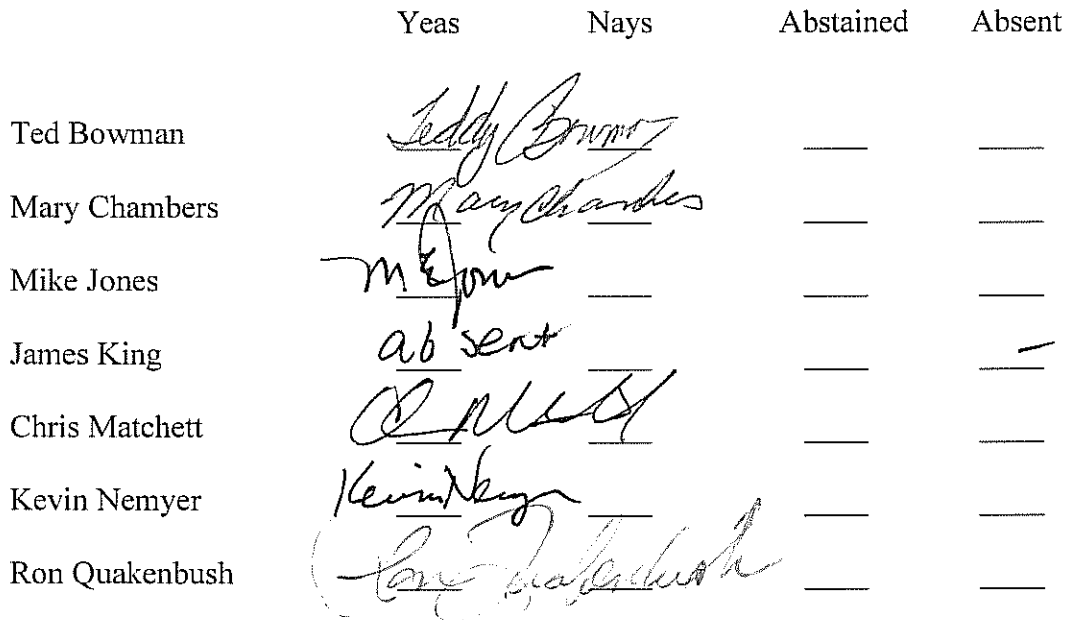 Yeas Nays Abstained Absent
Ted Bowman Teddy Bowman
Mary Chambers Mary Chambers
Mike Jones M E Jones
James King absent —
Chris Matchett
Kevin Nemyer Kevin Nemyer
Ron Quakenbush Ron Quakenbush